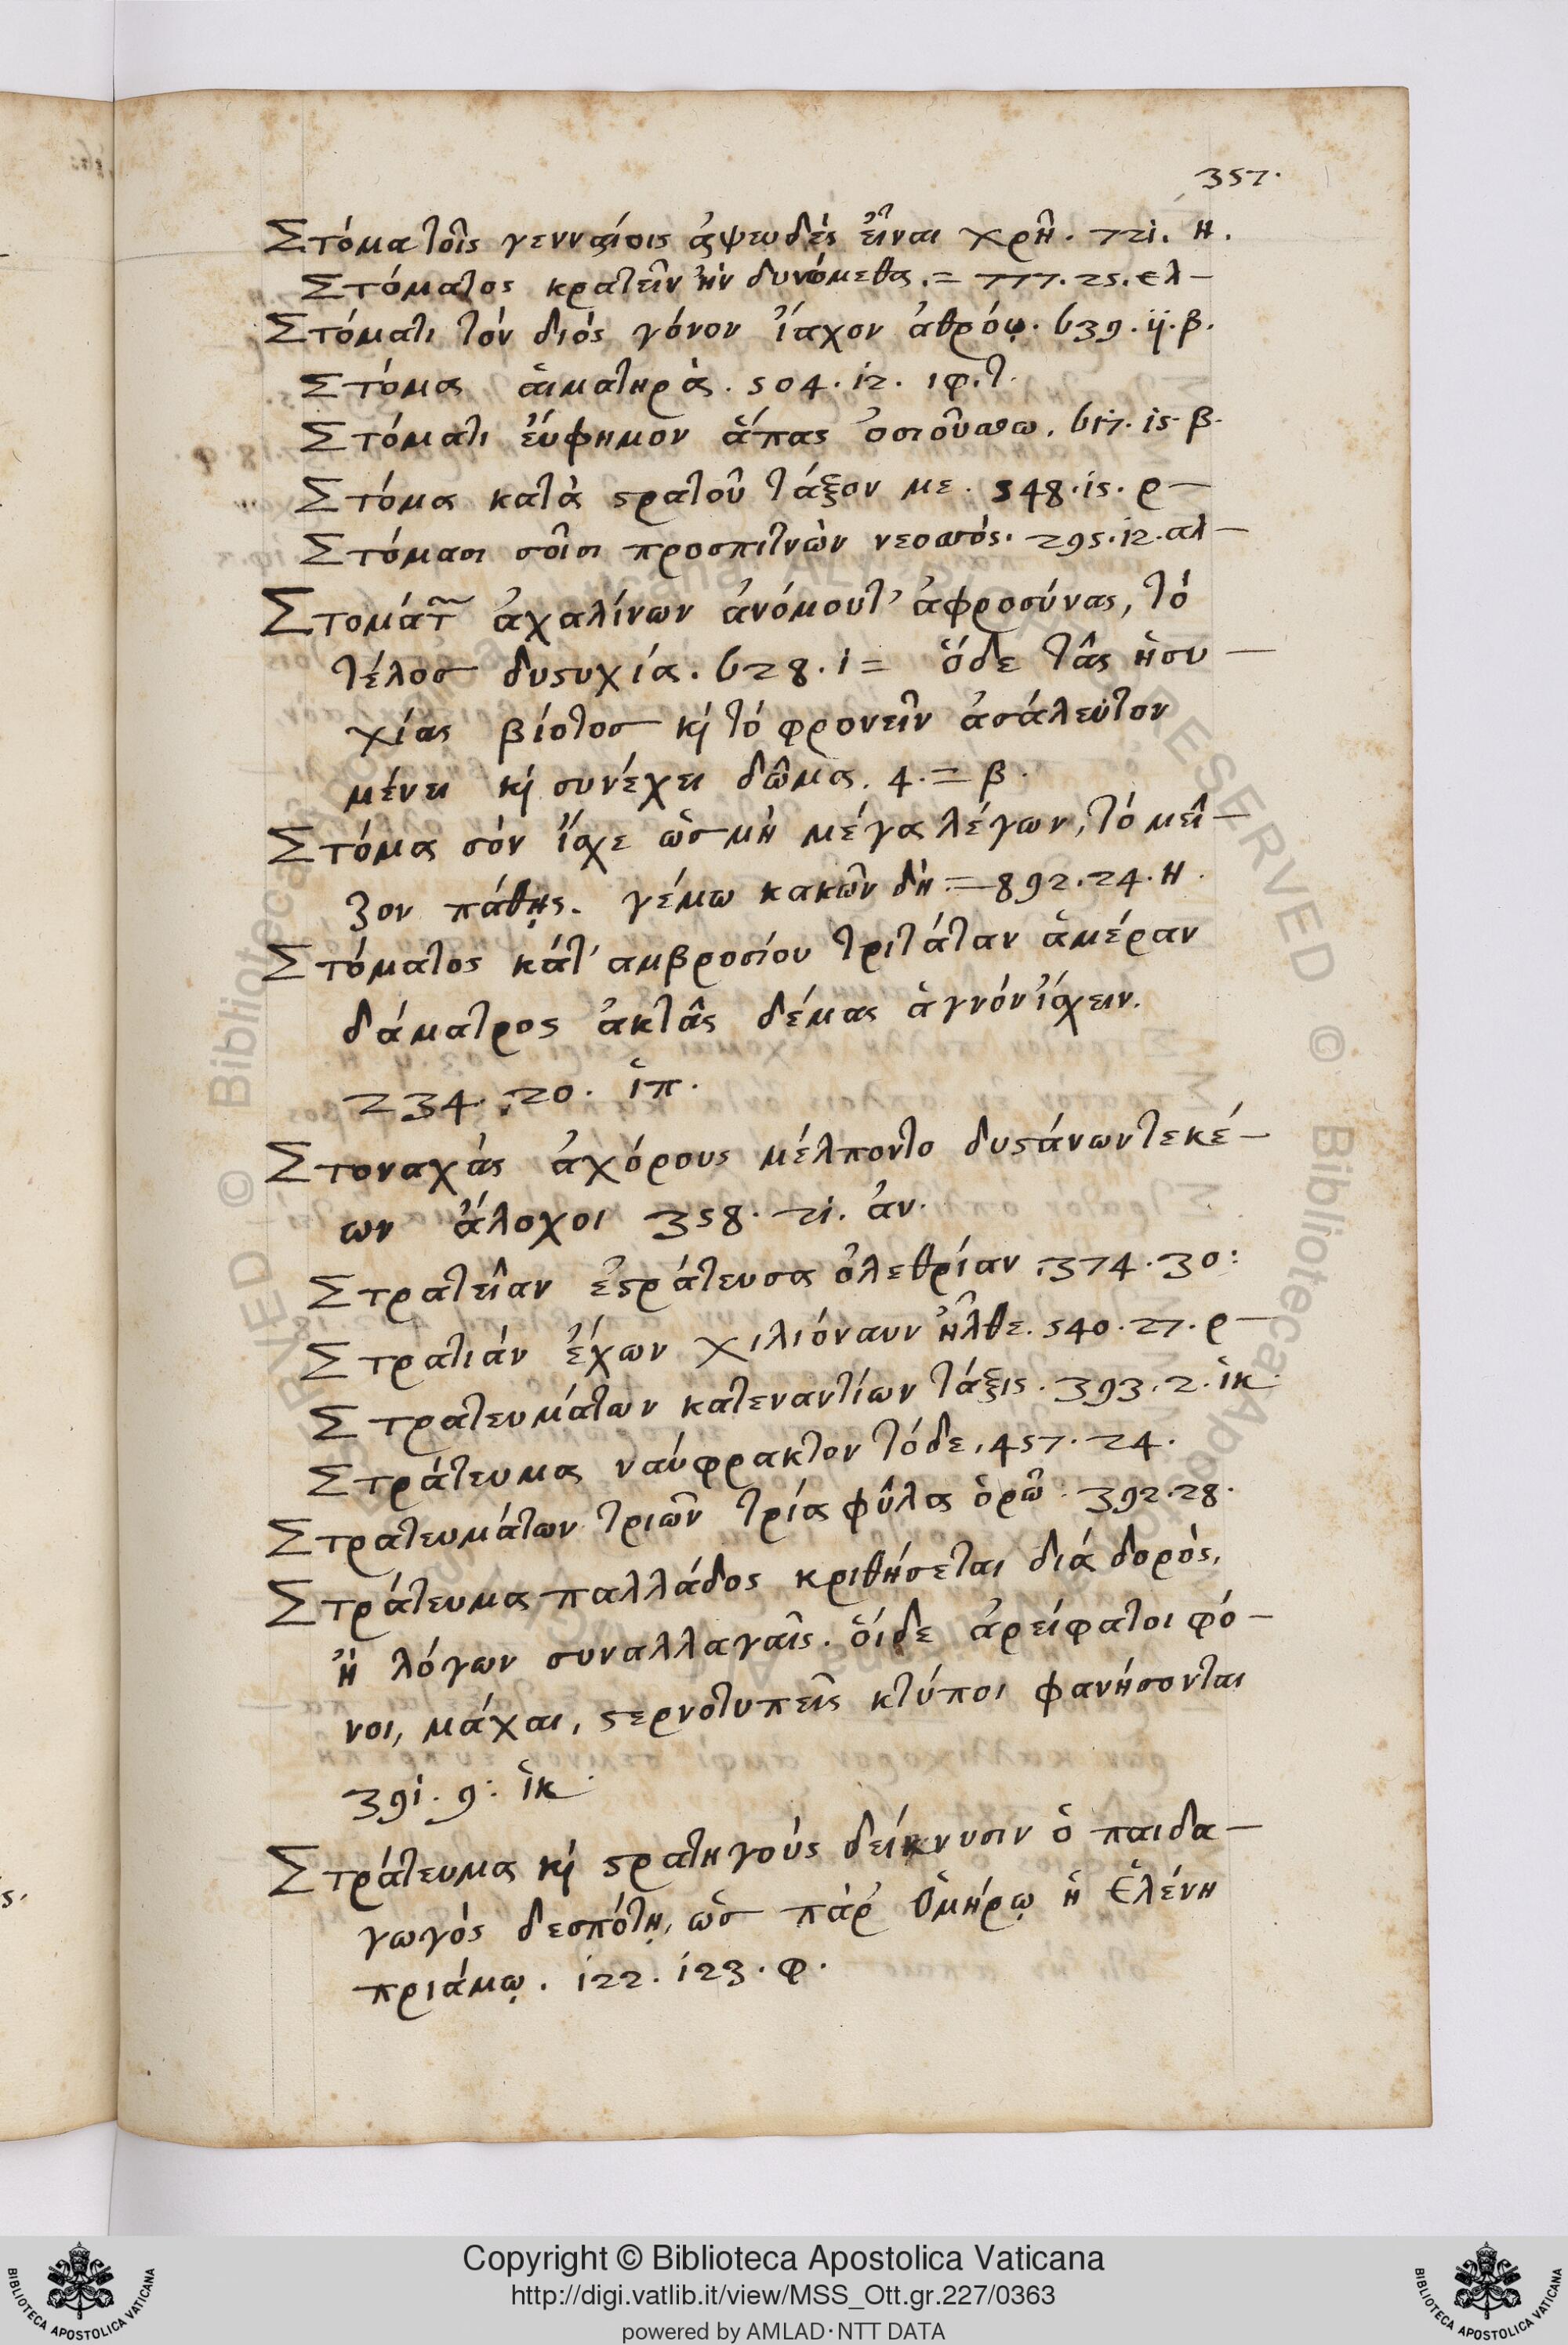 357.
Στόμα τοῖς γενναίοις ἀψευδὲς εἶναι χρῆ. 721. Η.
Στόματος κρατεῖν ἢν δυνώμεθα. = 777. 25. ελ—
Στόματι τὸν διὸς γόνον ἴαχον ἀθρόῳ. 639. ij. β.
Στόμα αἱματηρὰ. 504. 12. ιφ. τ.
Στόματι εὔφημον ἅπας ὁσιούσθω. 617. 15. β.
Στόμα κατὰ ςρατοῦ τάξον με. 548. 15. ρ—
Στόμασι σοῖσι προσπιτνὼν νεοσσός. 295. 12. αλ—
Στομάτ͂ ἀχαλίνων ἀνόμουτ᾽ ἀφροσύνας, τὸ
τέλος δυςυχία. 628. 1 = ὅδε τᾶς ἡσυ—
χίας βίοτος κ̀ τὸ φρονεῖν ἀσάλευτον
μένει κ̀ συνέχει δῶμα. 4. = β.
Στόμα σὸν ἴσχε ὡς μὴ μέγα λέγων, τὸ μεῖ—
ζον πάθῃς. γέμω κακῶν δὴ = 892. 24. Η.
Στόματος κάτ᾽ αμβροσίου τριτάταν ἁμέραν
δάματρος ἀκτᾶς δέμας ἁγνὸν ἴσχειν.
234. 20. ἱπ.
Στοναχὰς ἀχόρους μέλποντο δυςάνων τεκέ—
ων ἄλοχοι 358. 21. ἀν.
Στρατεῖαν ἐςράτευσα ὀλεθρίαν. 374. 30:
Στρατιὰν ἔχων χιλιόναυν ἦλθε. 540. 27. ρ—
Στρατευμάτων κατεναντίων τάξις. 393. 2. ἱκ.
Στράτευμα ναύφρακτον τόδε. 457. 24.
Στρατευμάτων τριῶν τρία φῦλα ὁρῶ. 392. 28.
Στράτευμα παλλάδος κριθήσεται διὰ δορὸς,
ἢ λόγων συναλλαγαῖς. οἵδε ἀρείφατοι φό—
νοι, μάχαι, ςερνοτυπεῖς κτύποι φανήσονται
391. 9: ἱκ.
Στράτευμα κ̀ ςρατηγοὺς δείκνυσιν ὁ παιδα—
γωγὸς δεσπότῃ, ὡς πὰρ᾽ ὁμήρῳ ἡ ἑλένη
πριάμῳ. 122. 123. φ.
Copyright © Biblioteca Apostolica Vaticana
http://digi.vatlib.it/view/MSS_Ott.gr.227/0363
powered by AMLAD·NTT DATA